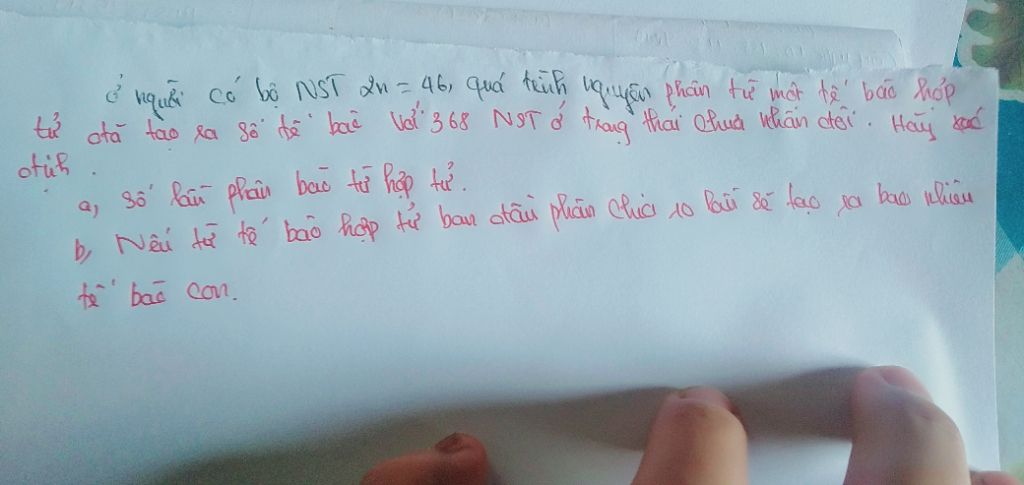 Ở người có bộ NST 2n = 46, quá trình nguyên phân từ một tế bào hợp
tử đã tạo ra số tế bào với 368 NST ở trạng thái chưa nhân đôi. Hãy xác
định.
a, Số lần phân bào từ hợp tử.
b, Nếu từ tế bào hợp tử ban đầu phân chia 10 lần sẽ tạo ra bao nhiêu
tế bào con.